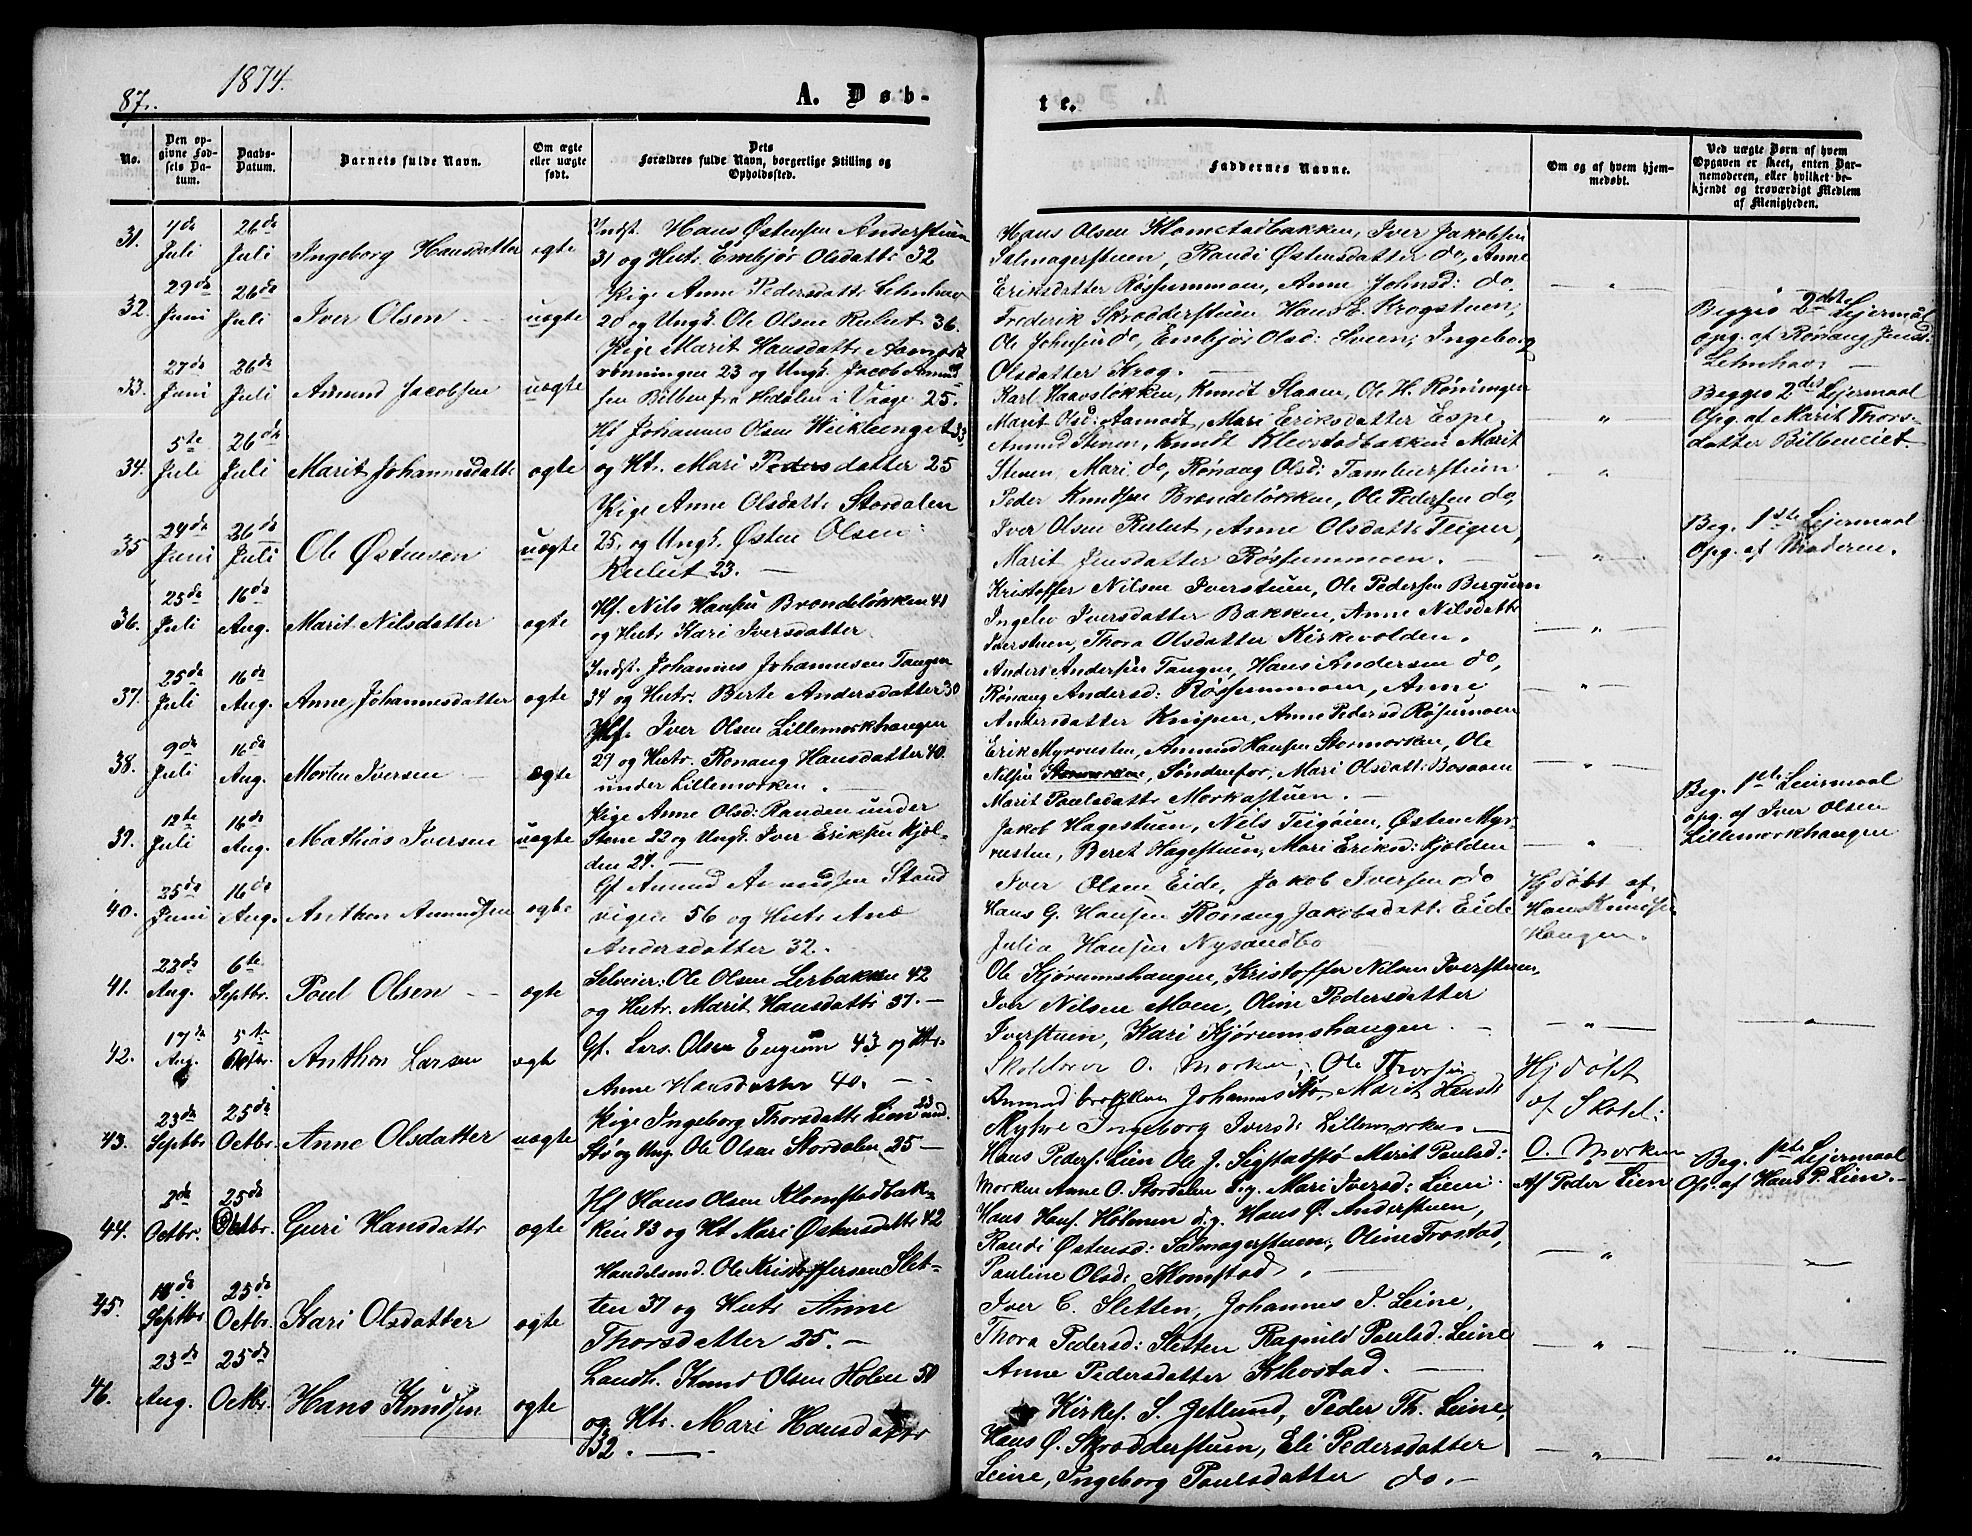 87.
1874.
A. Døb-
te.
No.
Den op-
givne Fød-
sels Da-
tum.
Daabs-
Datum.
Barnets fulde Navn.
Om ægte
eller uægte
født.
Dets
Forældres fulde Navn, borgerlige Stilling og
Opholdssted.
Faddernes Navne.
Om og af hvem hjem-
medøbt.
Ved uægte Børn af hvem
Opgaven er skeet, enten Bar-
nemoderen, eller hvilket be-
kjendt og troværdigt Medlem
af Menigheden.
31.
7de
Juli
26de
Juli
Ingeborg Hansdatter
ægte
Indst. Hans Østensen Anderstuen
31 og Hustr. Embjør Olsdattr 32
Hans Olsen Klomstadbakken, Iver Jakobsen
Salmagerstuen, Randi Østensdatter do, Anne
Eriksdatter Røssummoen, Anne Johnsd: do.
32.
29de
Juni
26de
Juli
Iver Olsen
uægte
Pige Anne Pedersdattr Lehnhav
20 og Ungk. Ole Olsen Rulut 36.
Frederik Skrædderstuen Hans E. Krogstuen,
Ole Johnsen do, Embjør Olsd: Sveen, Ingeborg
Olsdatter Krog.
Begges 2det Lejermaal
Opg. af Rønaug Jensd:
Lehnhav
33.
27de
Juni
26de
Juli
Amund Jacobsen
uægte
Pige Marit Hansdattr Aamodt
rønningen 23 og Ungk. Jacob Amund
sen Bilben fra Hedalen i Vaage 25.
Karl Haavsløkken, Knudt Slaaen, Ole H. Røningen
Marit Olsd: Aamodt, Mari Eriksdatter Espe,
Begges 2det Lejermaal
Opg. af Marit Thors-
datter Bilbeneiet
34.
5te
Juli
26de
Juli
Marit Johannesdattr
ægte
Hf Johannes Olsen Veiklenget 33
og Ht. Mari Pedersdatter 25
Amund Stenen, Knudt Klevstadbakken Marit
Steven, Mari do, Rønaug Olsd: Tamburstuen
35
24de
Juni
26de
Juli
Ole Østensen
uægte
Pige Anne Olsdattr Stordalen
25. og Ungk. Østen Olsen
Rulut 23.
Peder Knudsen Brændeløkken, Ole Pedersen do,
Iver Olsen Rulut, Anne Olsdattr Teigen,
Marit Jensdatter Røssummoen.
Beg. 1ste Lejermaal
Opg. af Moderen.
36.
25de
Juli
16de
Aug.
Marit Nilsdatter
ægte
Hf. Nils Hansen Brændeløkken 41
og Hustr Kari Iversdatter
Kristoffer Nilsen Iverstuen, Ole Pedersen Bergum
Ingelev Iversdatter Bakken, Anne Nilsdattr
Iverstuen, Thora Olsdatter Kirkevolden.
37.
25de
Juli
16de
Aug.
Anne Johannesdatter
ægte
Indst. Johannes Johannesen Tangen
34 og Hustr. Berte Andersdatter 30
Anders Andersen Tangen, Hans Andersen do,
Rønaug Andersd: Røssummoen, Anne
Andersdatter Knipen, Anne Pedersd Røsumoen
38.
9de
Juli
16de
Aug.
Morten Iversen
ægte
Hf. Iver Olsen Lillemorkhangen
29 og Hustr. Rønaug Hansdatter 40.
under Lillemorken.
Erik Myrvusten, Amund Hansen Stormorken, Ole
Nilsen Stormorken, Søndenfor, Mari Olsdatt: Bosaaen
Marit Paulsdattr Morkastuen.
39.
12te
Juli
16de
Aug.
Mathias Iversen
uægte
Pige Anne Olsd: Randen under
Stene 22 og Ungk. Iver Eriksen Kjøl-
den 27.
Jakob Hagestuen, Nils Teigøien, Østen Myr-
vusten, Beret Hagestuen, Mari Eriksd: Kjølden
Beg. 1ste Leiermaal
Opg. af Iver Olsen
Lillemorkhangen
40.
25de
Juni
16de
Aug.
Anthon Amundsen
ægte
Gf Amund Amundsen Stand
vigen 56 og Hustr Ane
Andersdatter 32.
Iver Olsen Eide, Jakob Iversen do
Hans G. Hansen Rønaug Jakobsdatt: Eide
Julia Hansen Nysandbo
Hjdøbt af
Hans Knudsen
Haugen.
41.
22de
Aug.
6te
Septbr.
Poul Olsen
ægte
Selveier: Ole Olsen Lerbakken 42
og Hustr. Marit Hansdattr 37.
Ole Kjørumshangen, Kristoffer Nilsen Iverstuen,
Iver Nilsen Moen, Oline Pedersdatter
Iverstuen, Kari Kjørumshangen.
42.
17de
Aug.
5te
Oktbr.
Anthon Larsen
ægte
Gf. Lars Olsen Engum 43 og Htr.
Anne Hansdatter 40.
Skolelærer O. Morken, Ole Thorsen
Amund brekken Johannes Stø Marit Hansd:
Myhre Ingeborg Iversd: Lillemorken
Hjdøbt
af Skolel:
O. Morken
43.
23de
Septbr
25de
Octbr.
Anne Olsdatter
uægte
Pige Ingeborg Thorsdattr Lien 23 und.
Stø og Ung. Ole Olsen Stordalen 25
Hans Peders. Lien Ole J. Sigstadstø Marit Paulsd:
Morken Anne O. Stordalen d.y. Mari Iversd: Lien
Af Peder Lien
Beg. 1ste Lejermaal
Op. af Hans P. Lien.
44.
2de
Octbr.
25de
Octbr.
Guri Hansdattr
ægte
Hf Hans Olsen Klomstadbak-
ken 43 og Ht Mari Østensdattr 42
Hans Hans. Holmen d.y. Hans Ø. Anderstuen,
Randi Østensd: Salmagerstuen, Oline Frostad,
Pauline Olsd: Klomstad.
45.
18de
Septbr
25de
Octbr.
Kari Olsdatter
ægte
Handelsmd. Ole Kristoffersen Slet-
ten 37 og Hustr Anne
Thorsdatter 25.
Iver C. Sletten, Johannes P. Leine,
Thora Pedersd: Sletten Ragnild Paulsd. Leine
Anne Pedersdatter Klevstad.
46.
23de
Aug.
25de
Octbr.
Hans Knudsen
ægte
Landh. Knud Olsen Holen 50
og Htr. Mari Hansdatter
32.
Kirkes. S. Jetlund, Peder Th. Leine,
Hans Ø. Skrædderstuen, Eli Pedersdatter
Leine, Ingeborg Paulsdatter do.